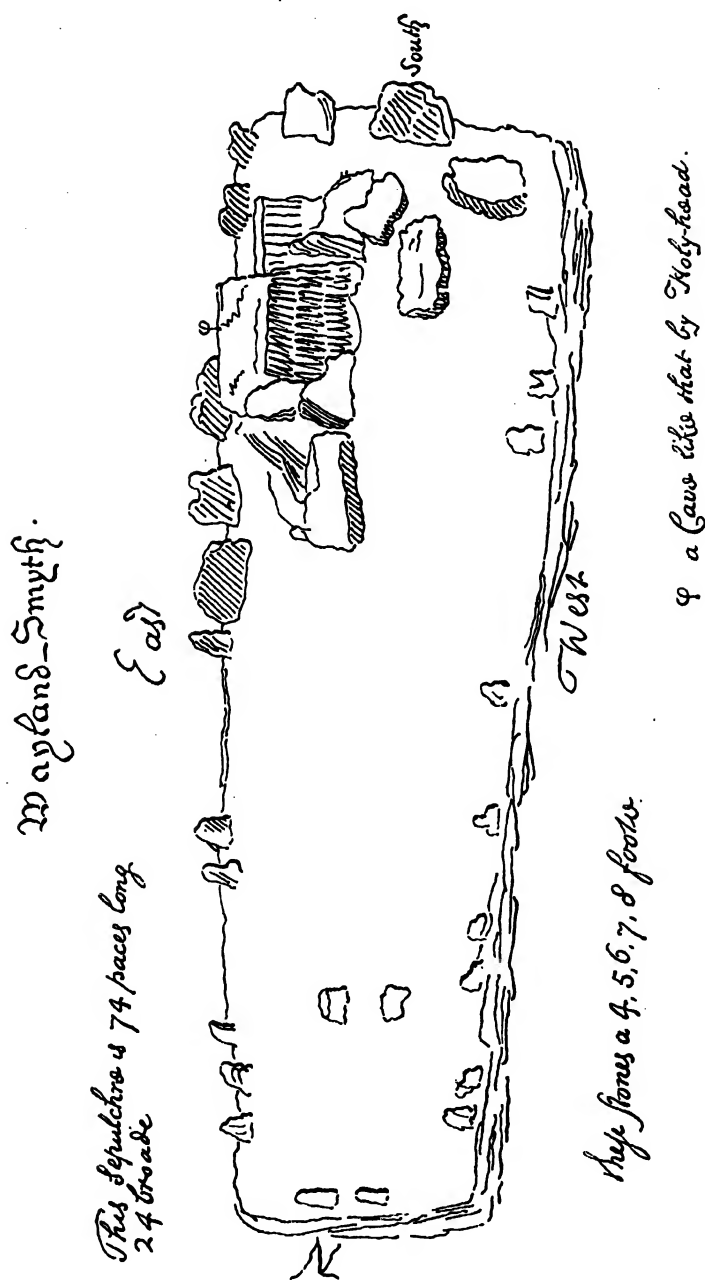 Wayland-Smyth.
East
This Sepulchre is 74 paces long
24 broade
South
West
these stones a 4, 5, 6, 7, 8 foote.
φ a Cave like that by Holy-head.
φ
N